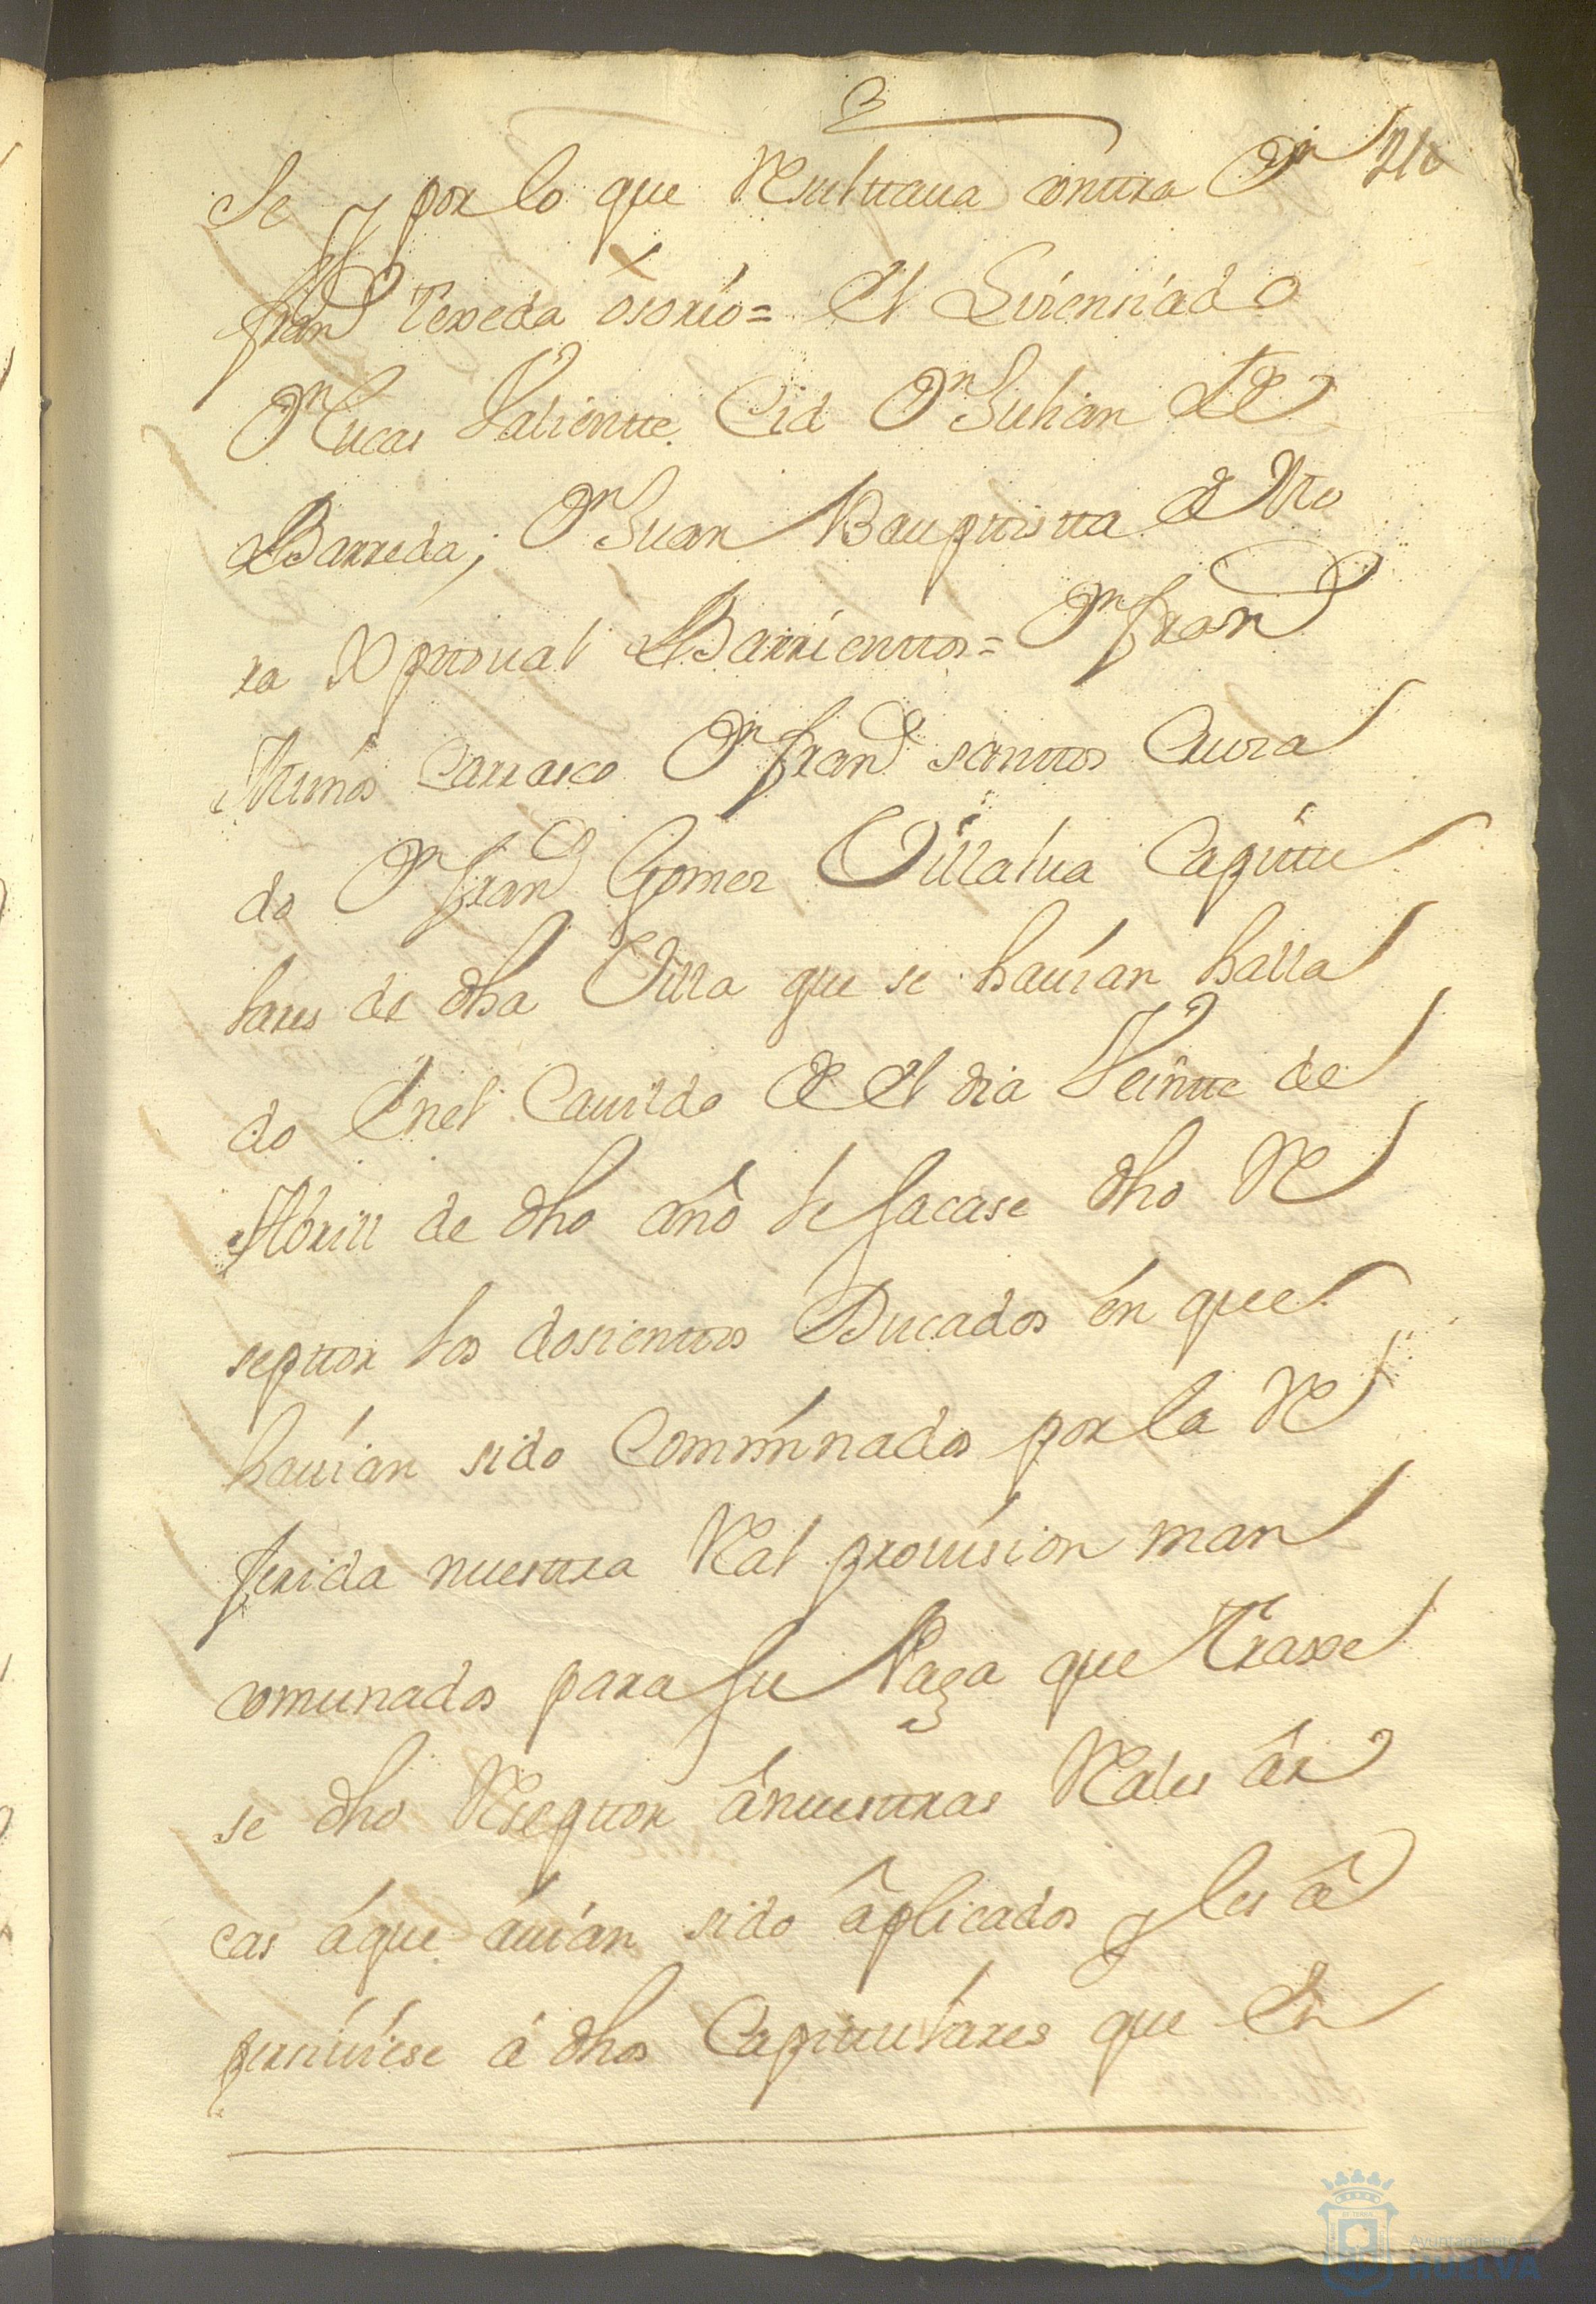 3
210
se y por lo que Resulttaua conttra Dn
Franco Texeda osorio = el Lisensiado
Dn Lucas Valientte Cid Dn Julian de
Barreda; Dn Juan Baupttistta de Mo
ra Xpttoual Barrienttos = Dn Franco
Muños Carrasco Dn Franco santtos Cura
do Dn Franco Gomez Villalua Capittu
lares de dha Villa que se hauian halla
do Enel Cauildo de el dia Veintte de
Abrill de dho año le sacase dho Re
septtor los dosienttos Ducados en que
hauian sido Comminados por la Re
ferida nuesttra Real prouision man
comunados para su Paga que Traxe
se dho Resepttor ânuesttras Reales âr
cas áque áuian sido âplicados y les â
perciuiese â dhos Capittulares que En
Ayuntamiento de
HUELVA